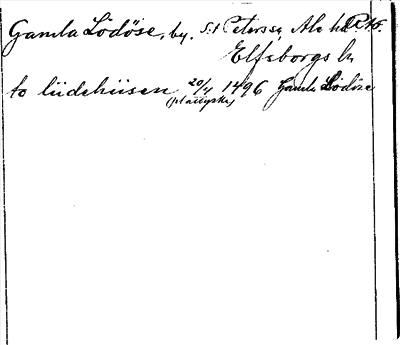 Gamla Lödöse, by. S:t Peterss, Ale hd P.17.
Elfsborgs ln
to lüdehüsen 20/4 1496 Gamla Lödöse
(plattyska)